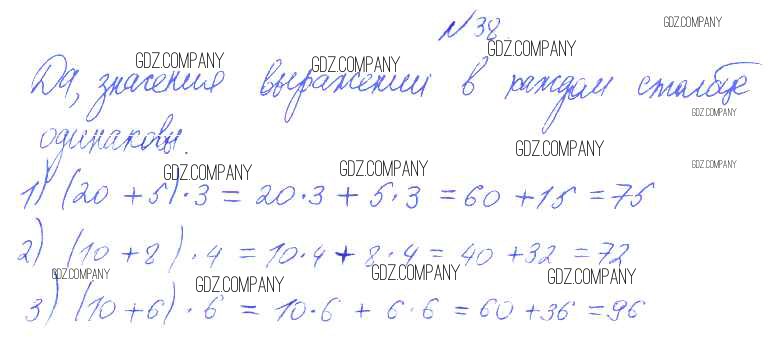 №38.
Да, значения выражений в каждом столбце
одинаковы.
1) (20 + 5) · 3 = 20 · 3 + 5 · 3 = 60 + 15 = 75
2) (10 + 8) · 4 = 10 · 4 + 8 · 4 = 40 + 32 = 72
3) (10 + 6) · 6 = 10 · 6 + 6 · 6 = 60 + 36 = 96
GDZ.COMPANY
GDZ.COMPANY
GDZ.COMPANY
GDZ.COMPANY
GDZ.COMPANY
GDZ.COMPANY
GDZ.COMPANY
GDZ.COMPANY
GDZ.COMPANY
GDZ.COMPANY
GDZ.COMPANY
GDZ.COMPANY
GDZ.COMPANY